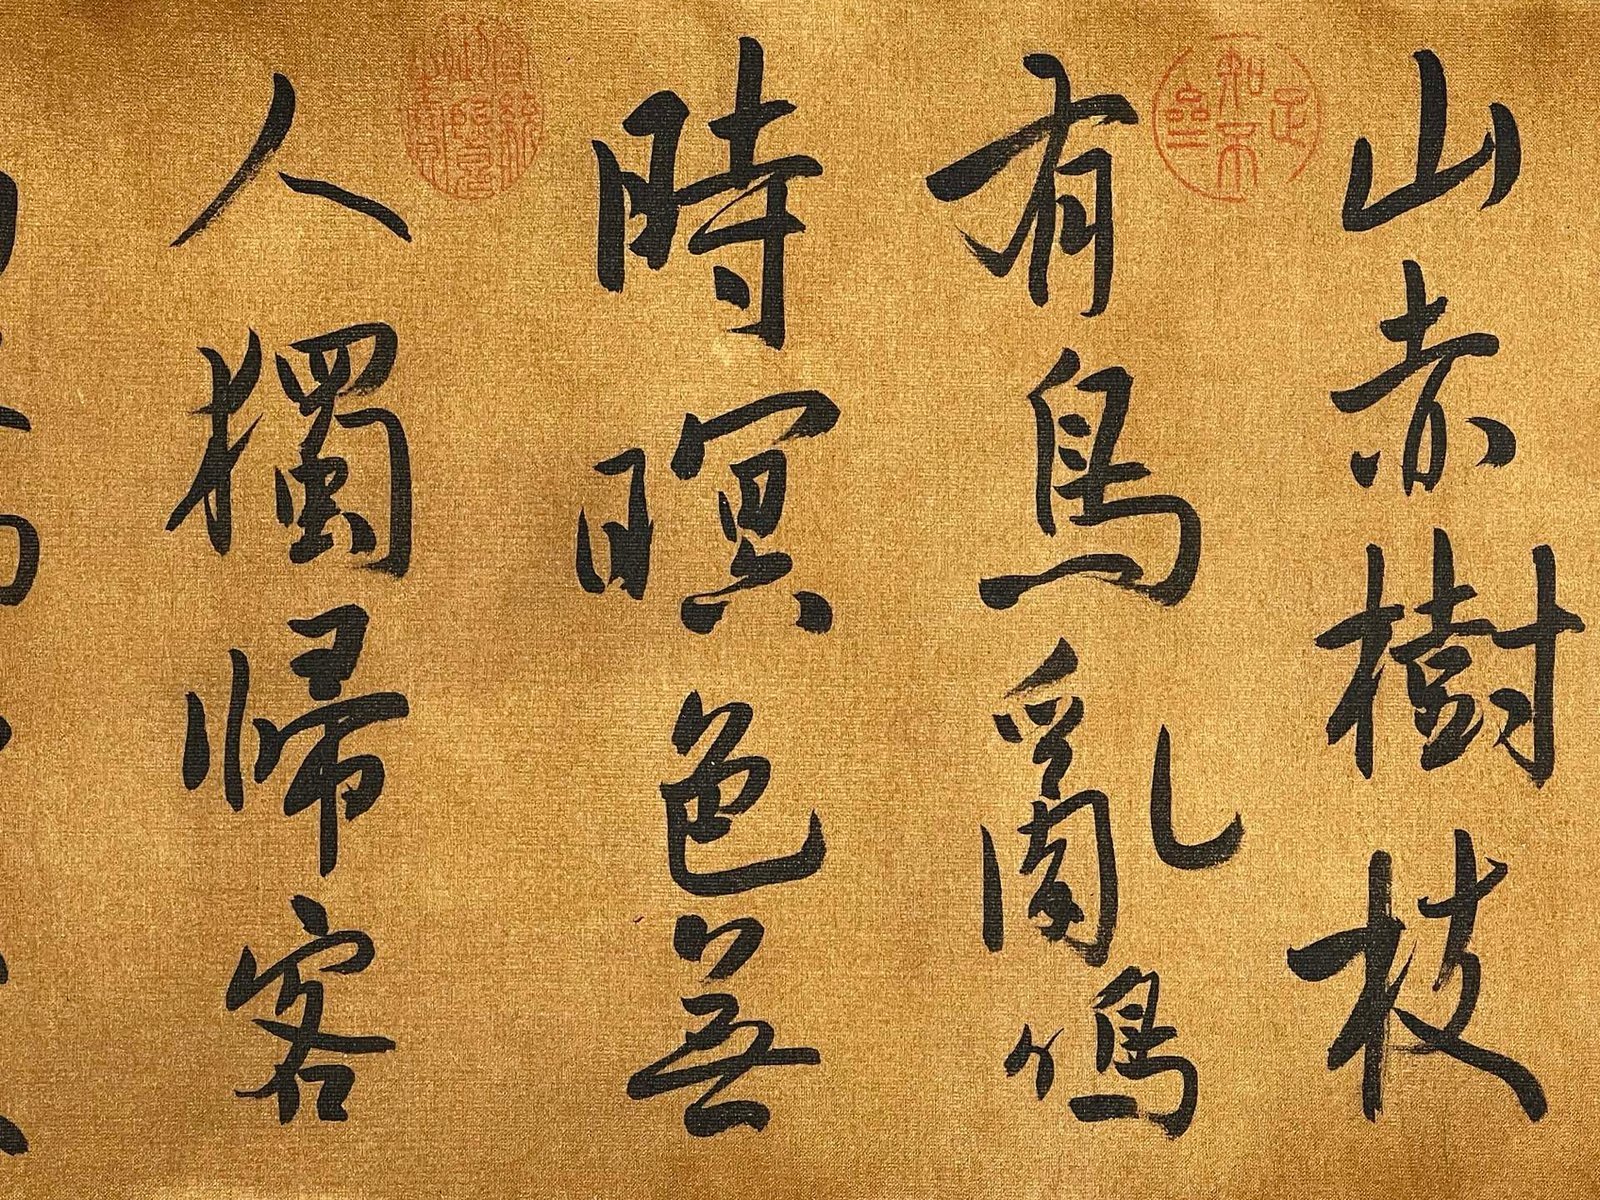 山赤樹枝
有鳥亂鳴
時暝色無
人獨歸客